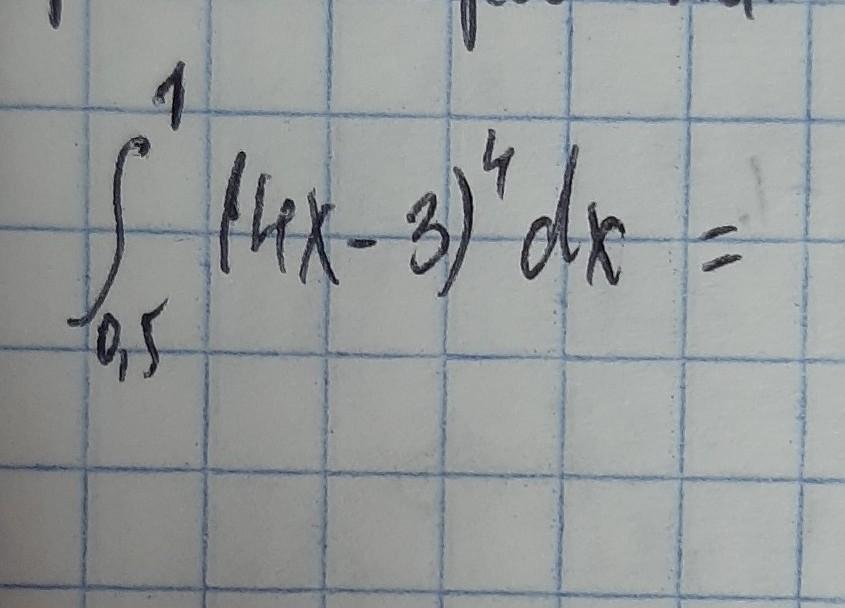 ∫_{0,5}^{1} (4x - 3)^4 dx =